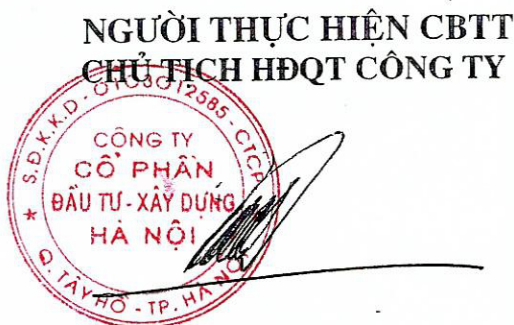 NGƯỜI THỰC HIỆN CBTT
CHỦ TỊCH HĐQT CÔNG TY
S.Đ.K.K.D - 0103012585 - CTCP
CÔNG TY
CỔ PHẦN
ĐẦU TƯ - XÂY DỰNG
HÀ NỘI
Q. TÂY HỒ - TP. HÀ NỘI